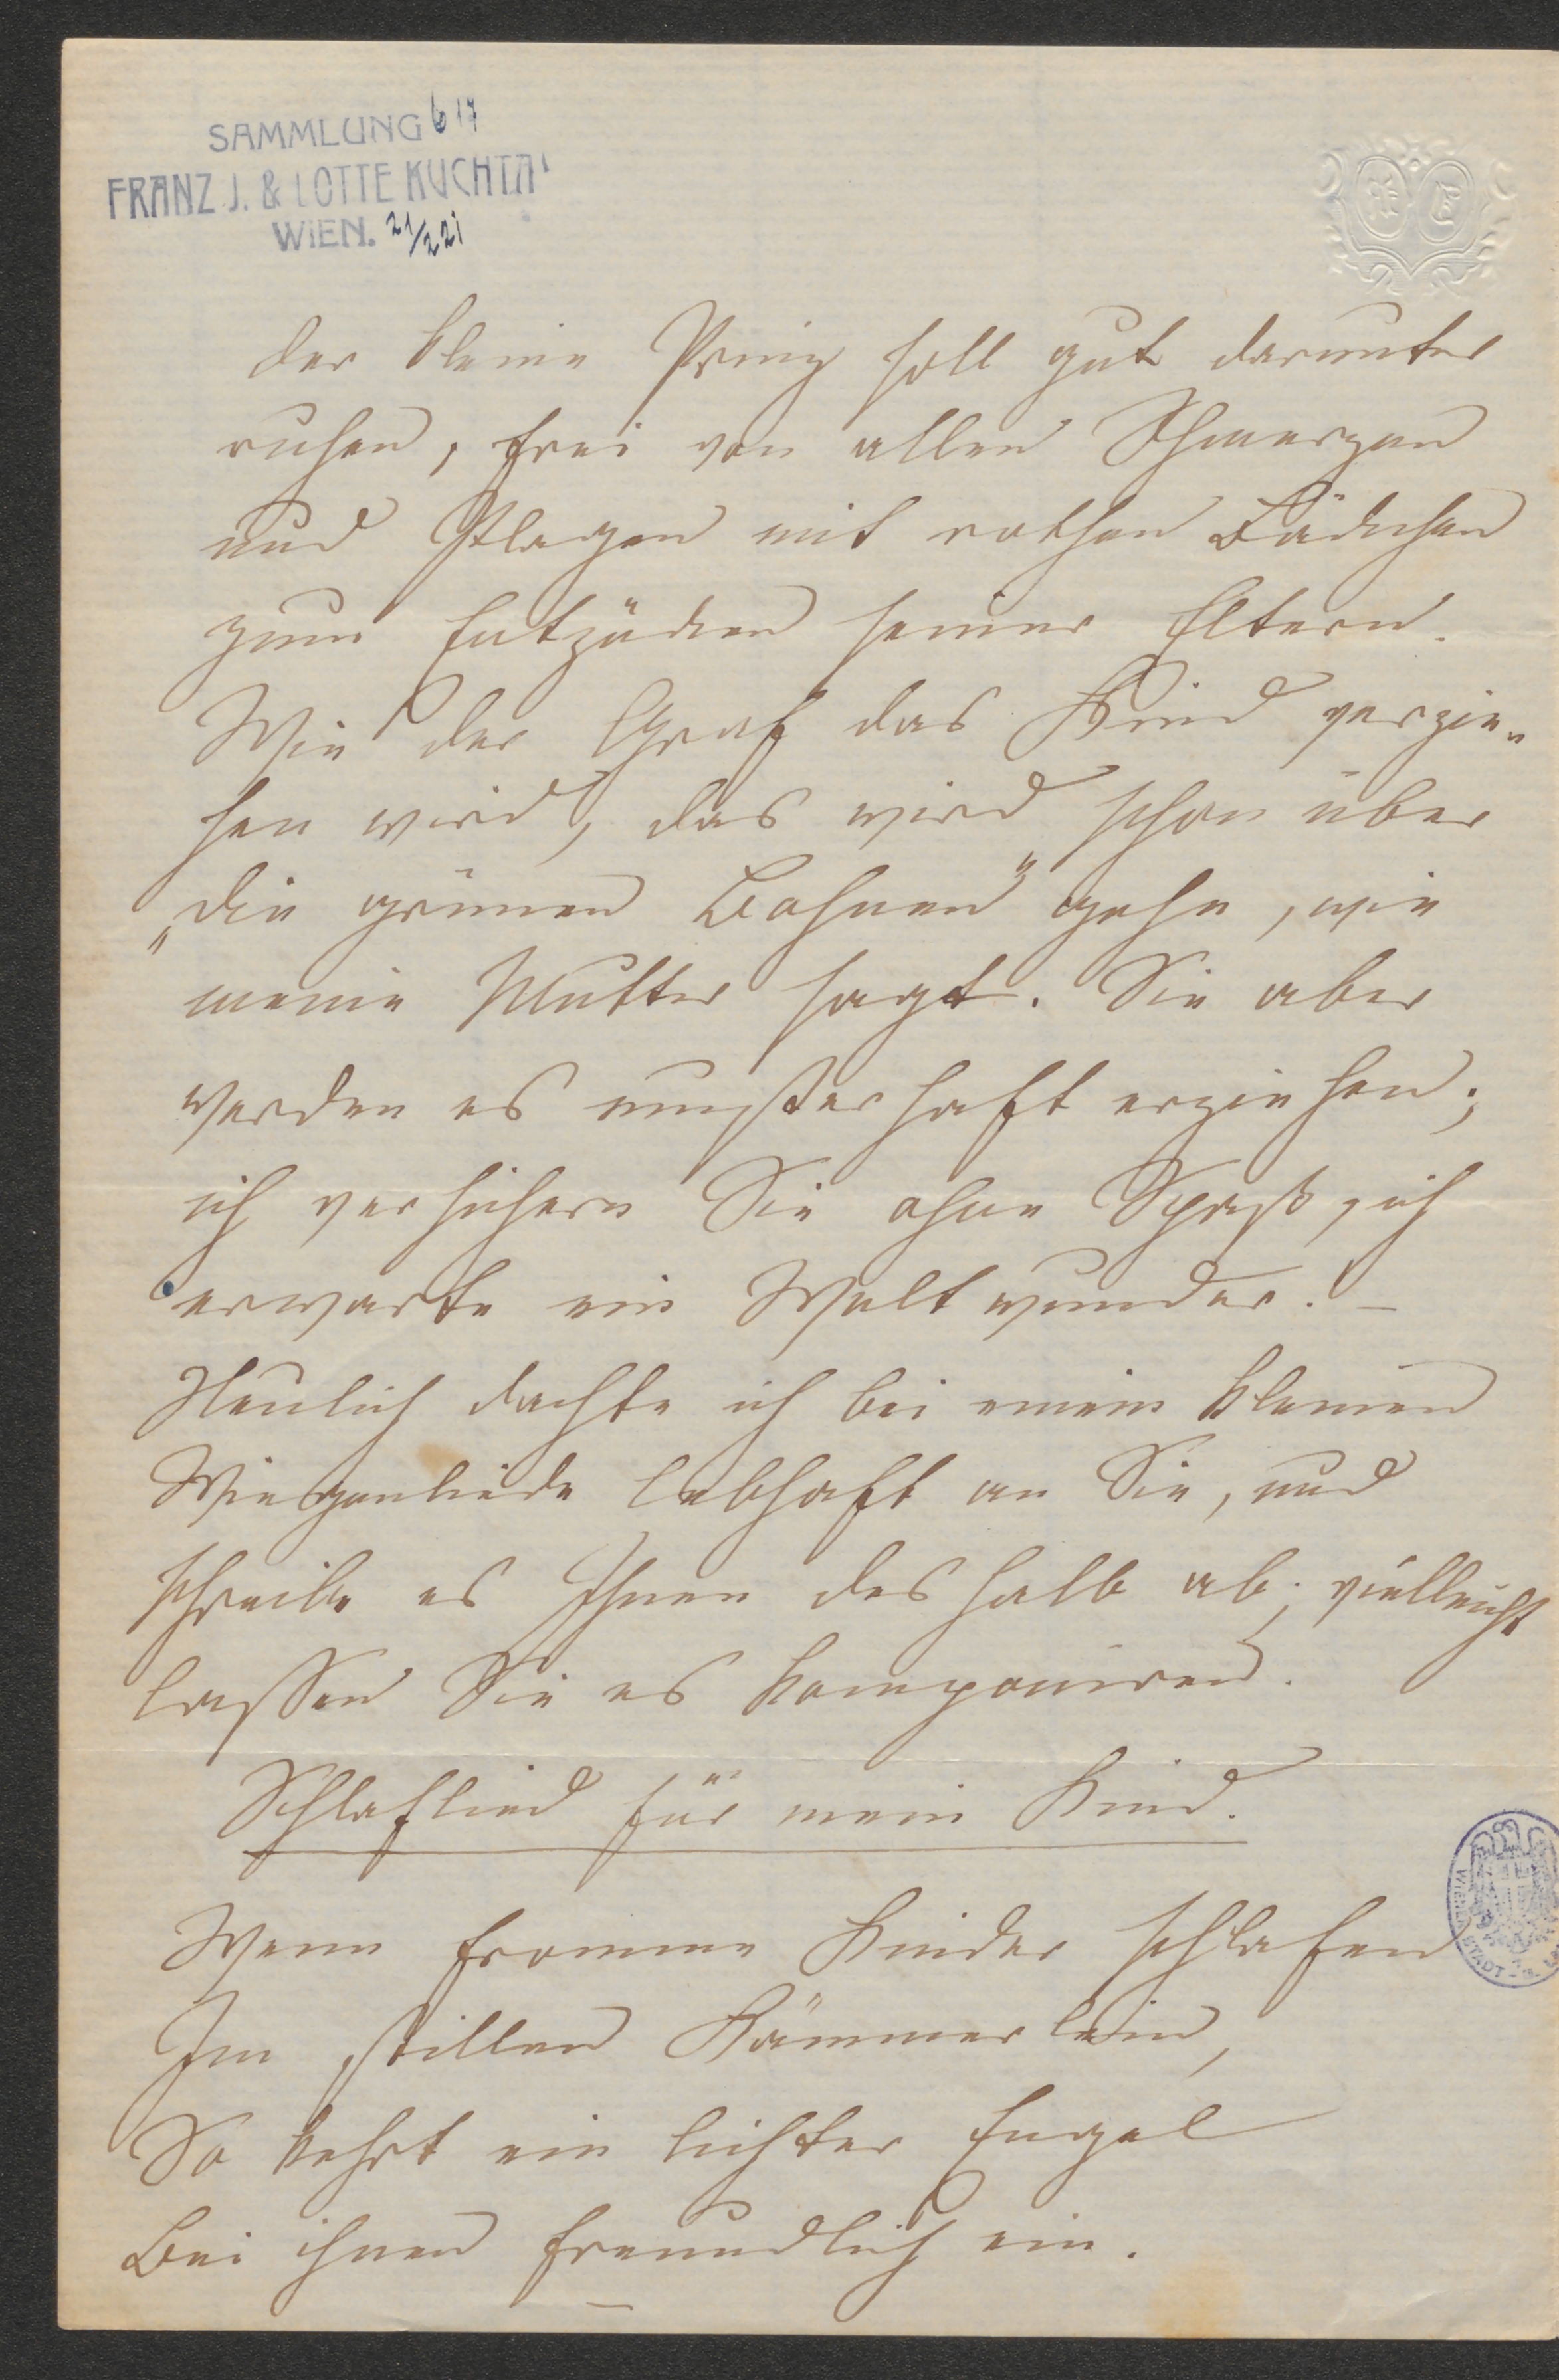 SAMMLUNG 617
FRANZ J. & LOTTE KUCHTA
WIEN. 21/221
der kleine Prinz soll gut darunter
ruhen, frei von allen Schmerzen
und Plagen mit rothen Bäckchen
zum Entzücken seiner Eltern.
Wie der Graf das Kind verzie-
hen wird, das wird schon über
„die grünen Bohnen" gehn, wie
meine Mutter sagt. Sie aber
werden es musterhaft erziehen;
ich versichere Sie ohne Spaß, ich
erwarte ein Weltwunder. –
Neulich dachte ich bei einem kleinen
Wiegenliede lebhaft an Sie, und
schreibe es Ihnen deshalb ab; vielleicht
lassen Sie es komponiren.
Schlaflied für mein Kind.
Wenn fromme Kinder schlafen
Im stillen Kämmerlein,
So kehrt ein lichter Engel
Bei ihnen freundlich ein.